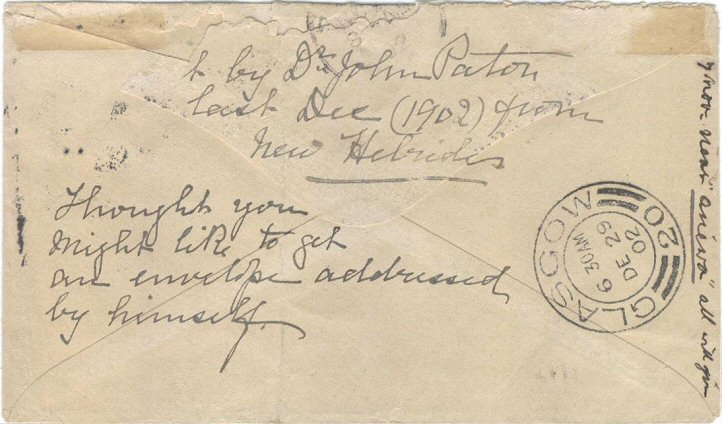 t by Dr John Paton
last Dec (1902) from
New Hebrides
Thought you
might like to get
an envelope addressed
by himself.
GLASGOW
20
6 30AM
DE 29
02
now near "aniwa" all